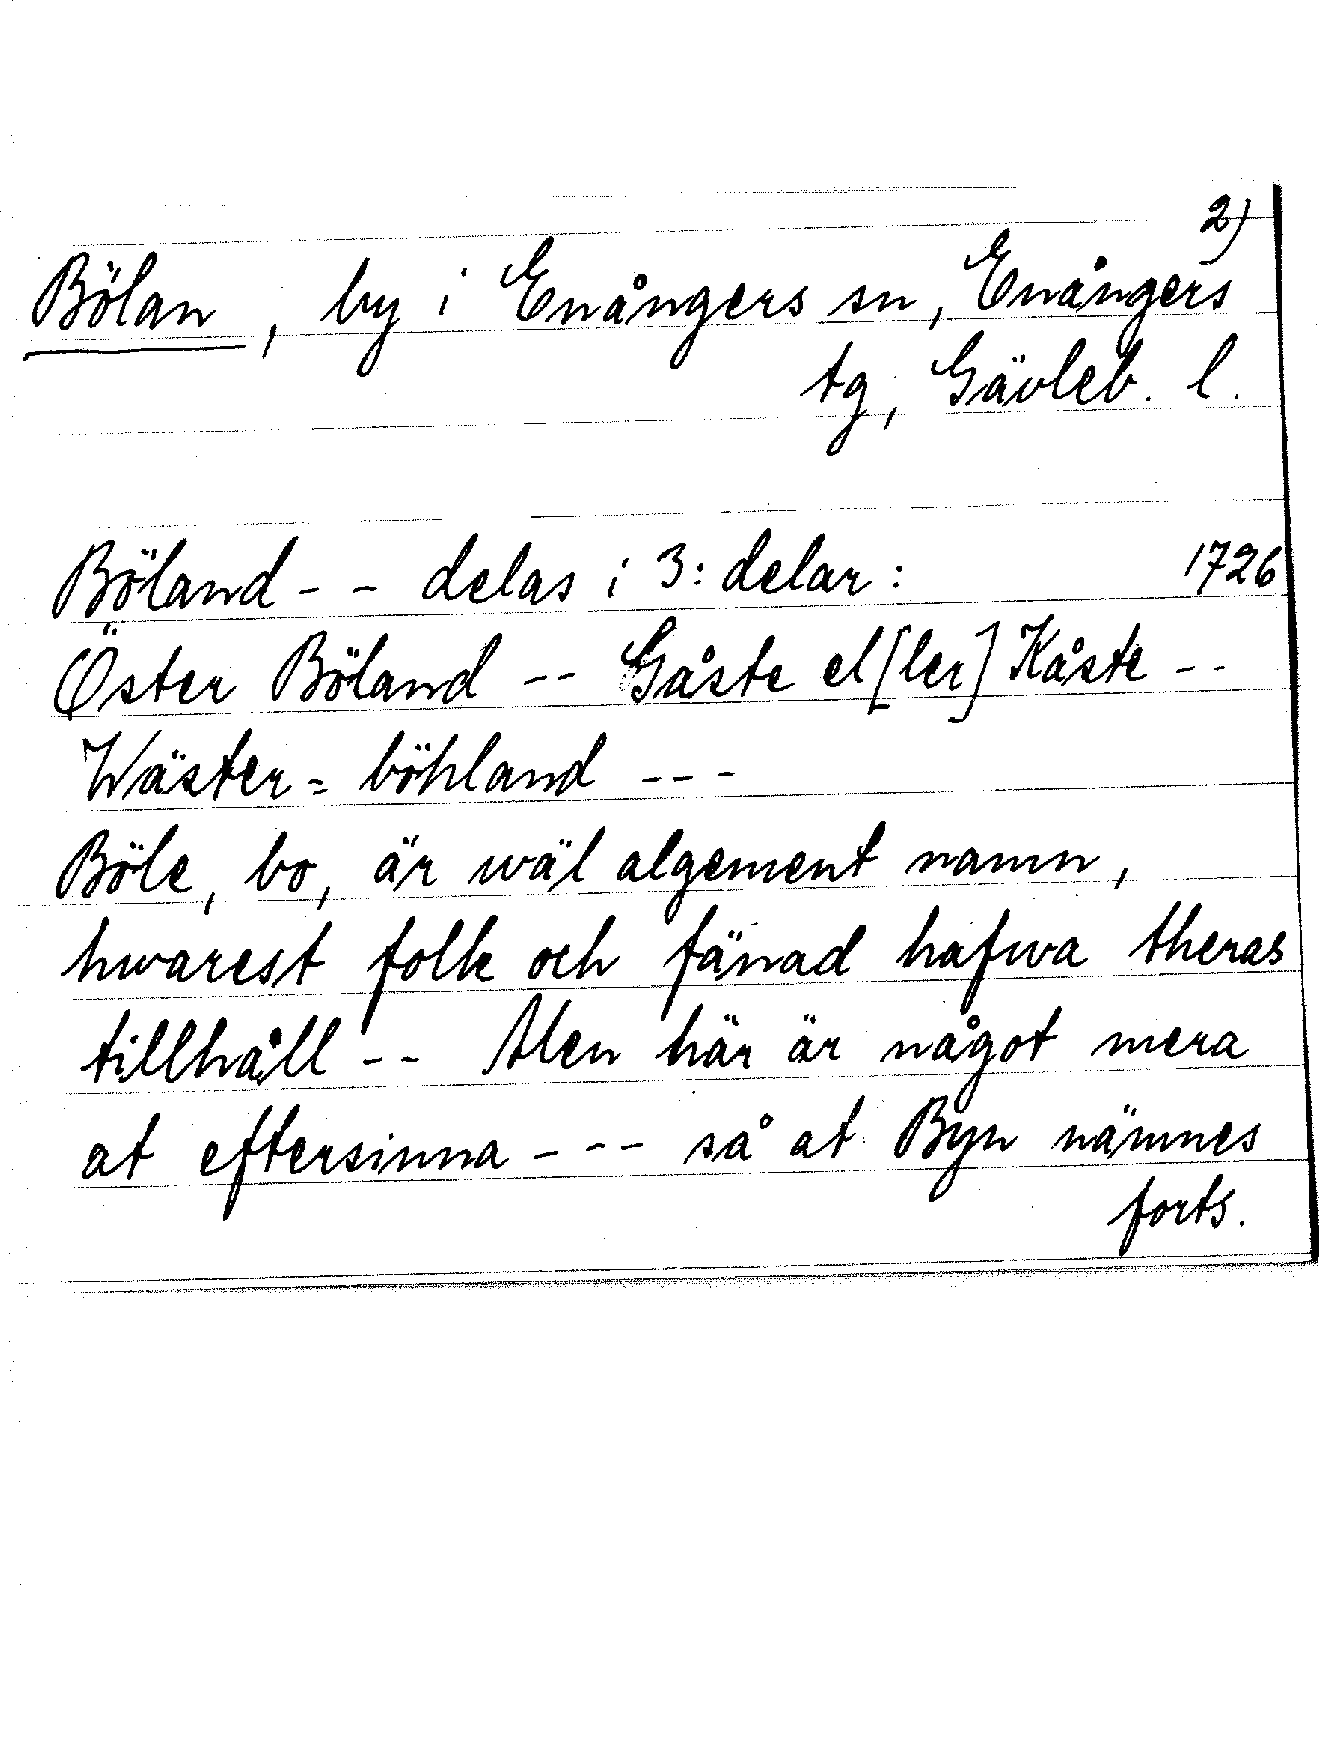 2)
Bölan, by i Enångers sn, Enångers
tg, Gävleb. l.
Böland - - delas i 3: delar: 1726
Öster Böland -- Gåste el[ler] Kåste --
Wäster = böhland ---
Böle, bo, är wäl algement namn,
hwarest folk och fänad hafwa theras
tillhåll -- Men här är något mera
at eftersinna --- så at Byn nämnes
forts.